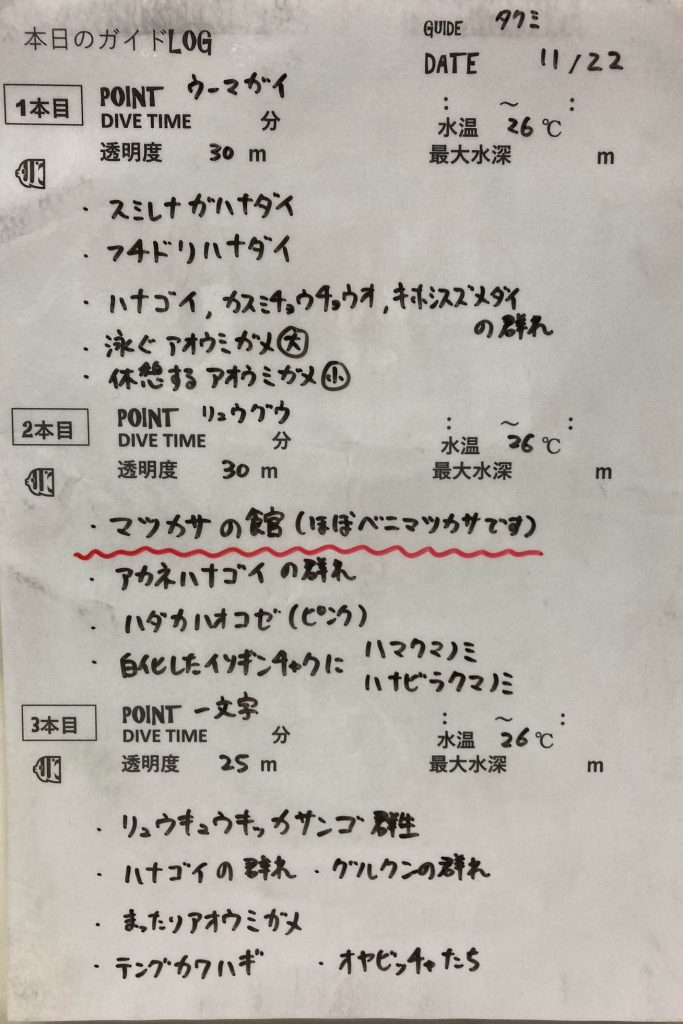 本日のガイドLOG
GUIDE タクミ
DATE 11/22
1本目 POINT ウーマガイ : ～ :
DIVE TIME 分 水温 26 ℃
透明度 30 m 最大水深 m
・スミレナガハナダイ
・フチドリハナダイ
・ハナゴイ, カスミチョウチョウオ, キホシスズメダイ
の群れ
・泳ぐアオウミガメ大
・休憩するアオウミガメ小
2本目 POINT リュウグウ : ～ :
DIVE TIME 分 水温 26 ℃
透明度 30 m 最大水深 m
・マツカサの館(ほぼベニマツカサです)
・アカネハナゴイの群れ
・ハダカハオコゼ(ピンク)
・白化したイソギンチャクに ハマクマノミ
ハナビラクマノミ
3本目 POINT 一文字 : ～ :
DIVE TIME 分 水温 26 ℃
透明度 25 m 最大水深 m
・リュウキュウキッカサンゴ 群生
・ハナゴイの群れ ・グルクンの群れ
・まったりアオウミガメ
・テングカワハギ ・オヤビッチャたち